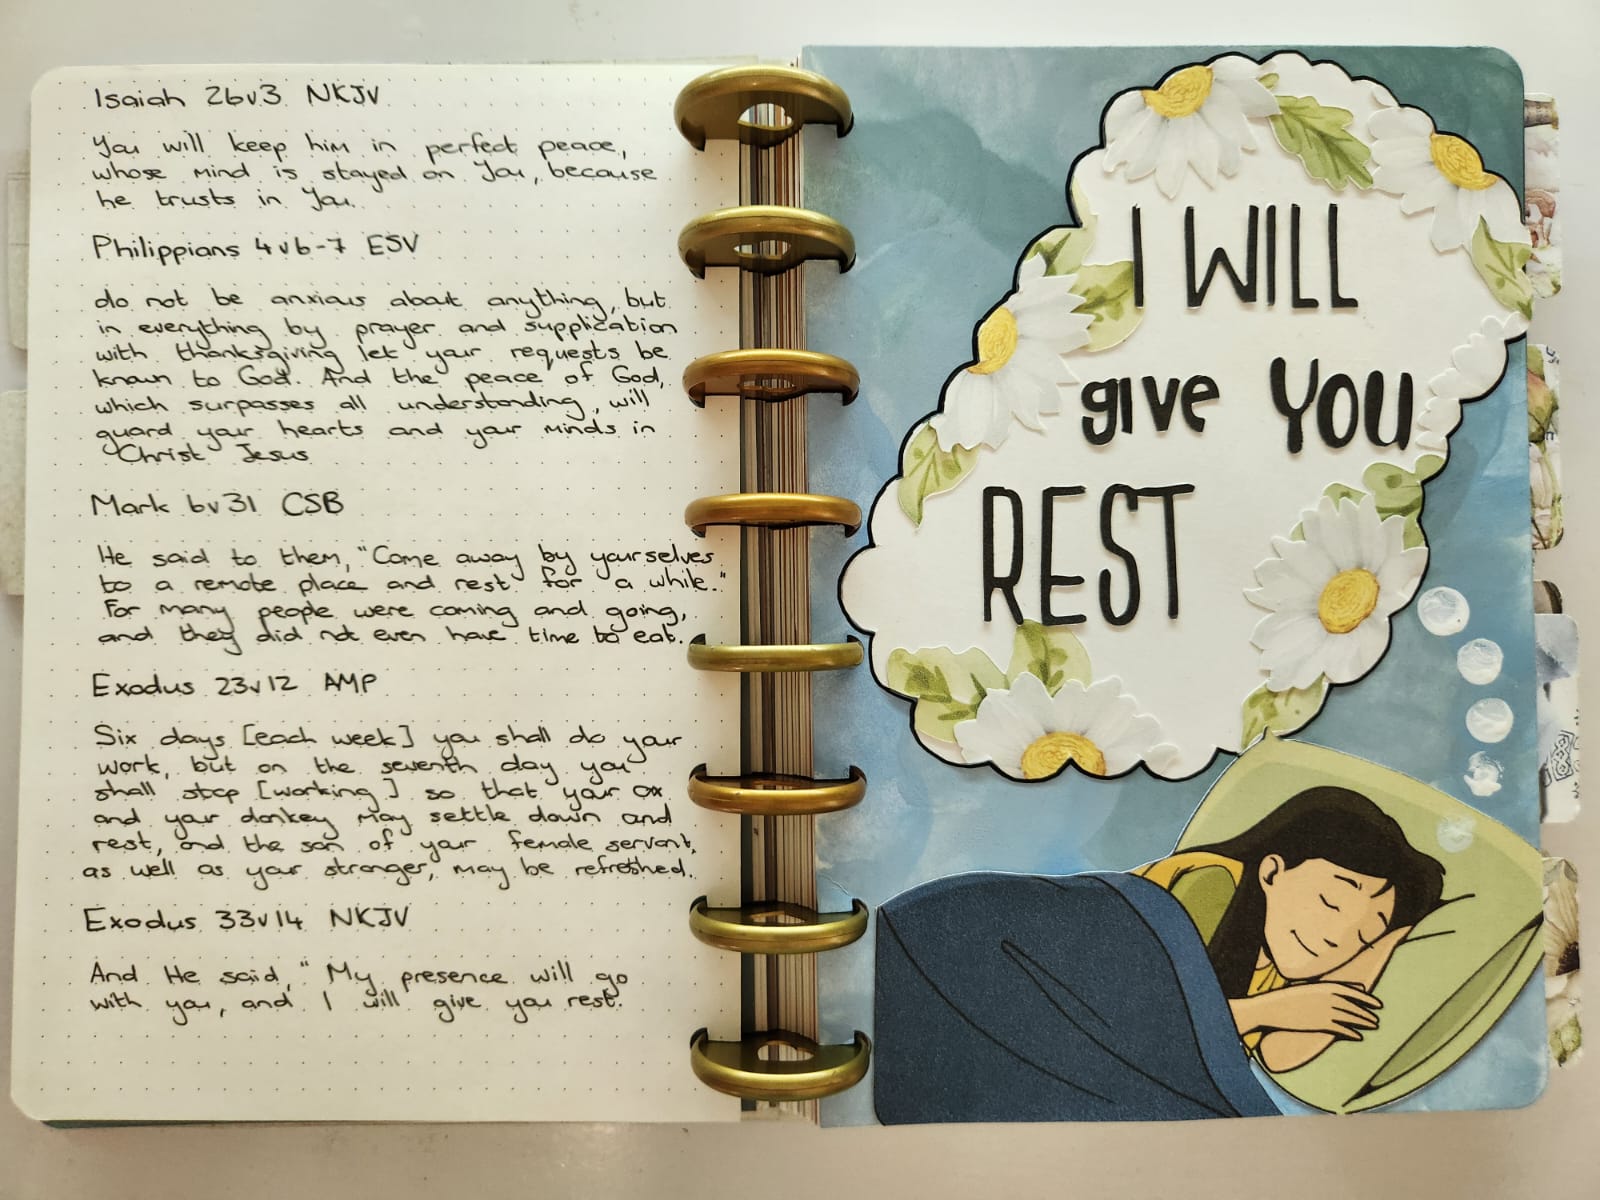 Isaiah 26v3 NKJV
You will keep him in perfect peace,
whose mind is stayed on You, because
he trusts in You.
Philippians 4v6-7 ESV
do not be anxious about anything, but
in everything by prayer and supplication
with thanksgiving let your requests be
known to God. And the peace of God,
which surpasses all understanding, will
guard your hearts and your minds in
Christ Jesus
Mark 6v31 CSB
He said to them, "Come away by yourselves
to a remote place and rest for a while."
For many people were coming and going,
and they did not even have time to eat.
Exodus 23v12 AMP
Six days [each week] you shall do your
work, but on the seventh day you
shall stop [working] so that your ox
and your donkey may settle down and
rest, and the son of your female servant,
as well as your stranger, may be refreshed.
Exodus 33v14 NKJV
And He said, "My presence will go
with you, and I will give you rest.
I WILL
give YOU
REST